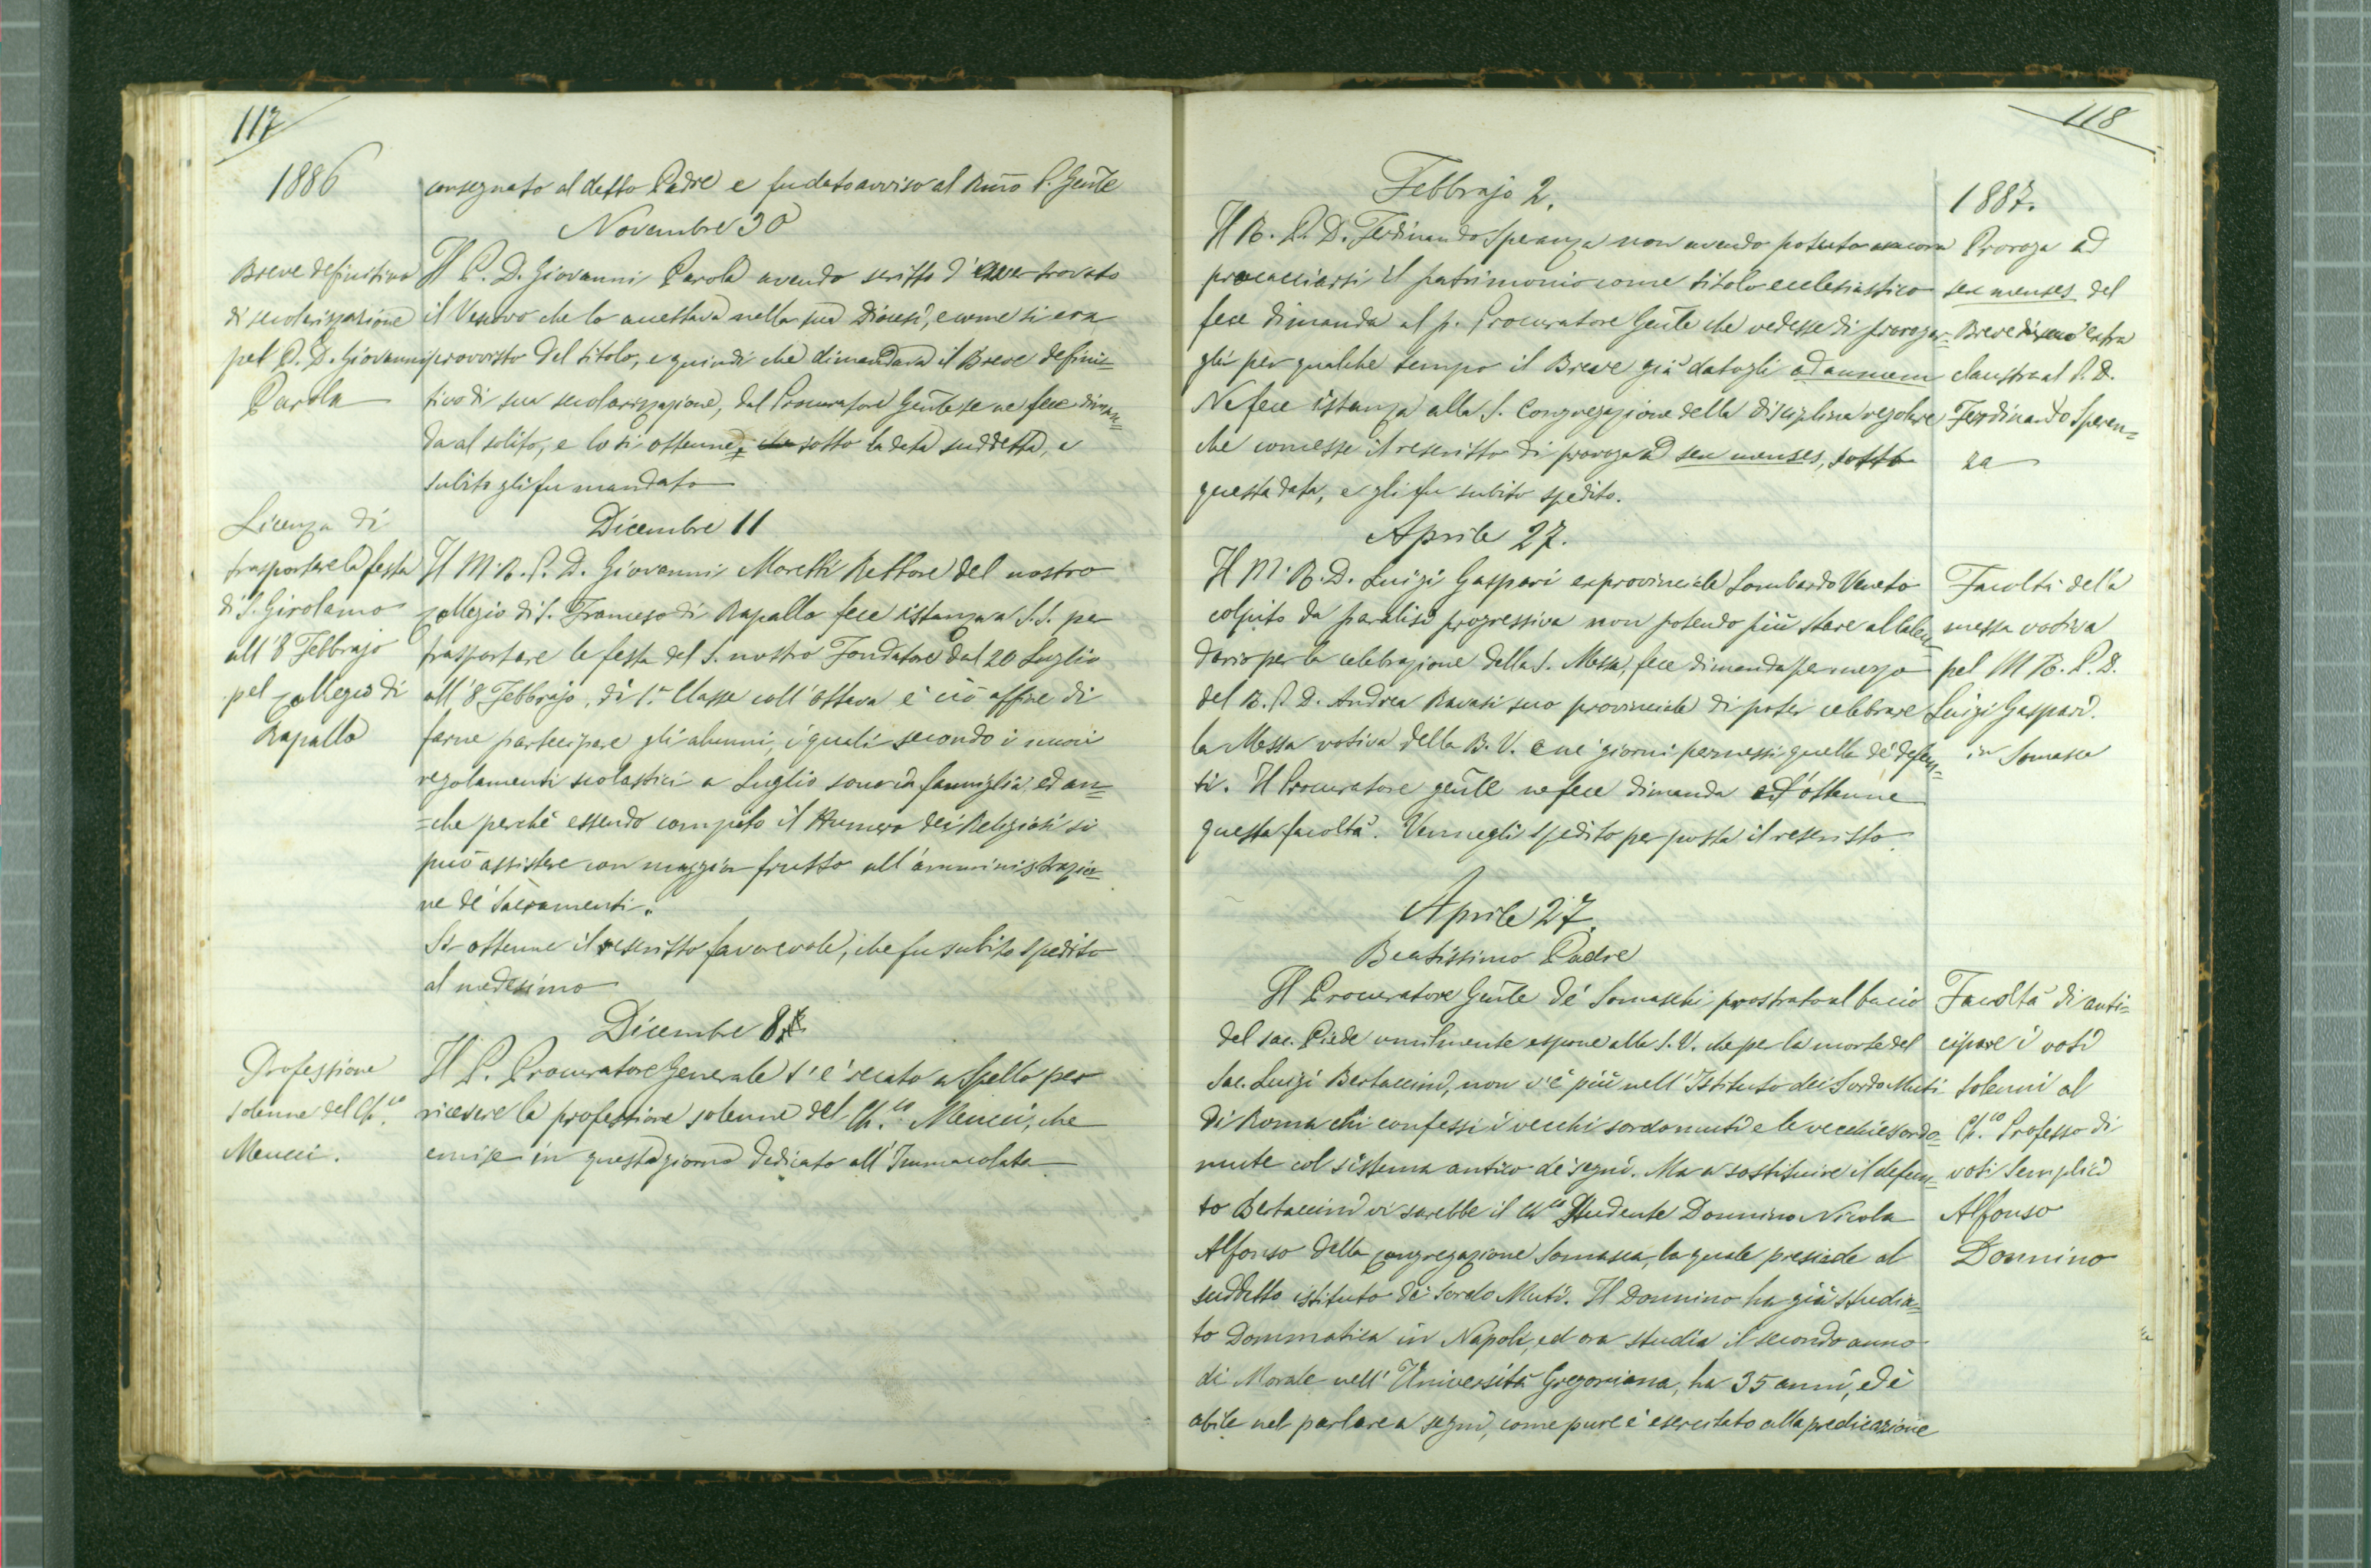 117
1886
consegnato al detto Padre e fu dato avviso al Rmo P. Gñle
Novembre 30
Breve definitivo
di secolarizzazione
pel P. D. Giovanni
Parola
Il P. D. Giovanni Parola avendo scritto d'aver trovato
il Vescovo che lo accettava nella sua Diocesi, e come si era
provvisto del titolo, e quindi che dimandava il Breve defini=
tivo di sua secolarizzazione, dal Procuratore Gñle se ne fece diman=
da al solito, e lo si ottenne, sotto la data suddetta, e
subito gli fu mandato
Licenza di
trasportare la festa
di S. Girolamo
all'8 Febbrajo
pel Collegio di
Rapallo
Dicembre 11
Il M. R. P. D. Giovanni Moretti Rettore del nostro
Collegio di S. Francesco di Rapallo fece istanza a S. S. per
trasportare la festa del S. nostro Fondatore dal 20 Luglio
all'8 Febbrajo, di 1ª Classe coll'ottava e ciò affine di
farne partecipare gli alunni, i quali secondo i nuovi
regolamenti scolastici a Luglio sono in famiglia, ed an=
=che perchè essendo compito il Numero dei Religiosi si
può assistere con maggior frutto all'amministrazio=
ne de' Sacramenti.
Si ottenne il rescritto favorevole, che fu subito spedito
al medesimo
Dicembre 8.
Professione
solenne del Ch.co
Meucci.
Il P. Procuratore Generale s'è recato a Spello per
ricevere la professione solenne del Ch.co Meucci, che
emise in questo giorno dedicato all'Immacolata
118
1887.
Febbrajo 2.
Il R. P. D. Ferdinando Speranza non avendo potuto ancora
procacciarsi il patrimonio come titolo ecclesiastico
fece dimanda al p. Procuratore Gñle che vedesse di prorogar=
gli per qualche tempo il Breve già datogli ad annum
Ne fece istanza alla S. Congregazione della disciplina regolare
che concesse il rescritto di proroga ad sex menses, sotto
questa data, e gli fu subito spedito.
Proroga ad
sex menses del
Breve extra
claustra al P. D.
Ferdinando Speran=
za
Aprile 27.
Il M. R. D. Luigi Gaspari exprovinciale Lombardo Veneto
colpito da paralisi progressiva non potendo più stare al Calen=
dario per la celebrazione della S. Messa, fece dimanda per mezzo
del R. P. D. Andrea Ravasi suo provinciale di poter celebrare
la Messa votiva della B. V. e ne' giorni permessi quella de' defun=
ti. Il Procuratore gñle ne fece dimanda ed ottenne
questa facoltà. Vennegli spedito per posta il rescritto.
Facoltà della
messa votiva
pel M. R. P. D.
Luigi Gaspari.
in Somasca
Aprile 27.
Beatissimo Padre
Il Procuratore Gñle de' Somaschi prostrato al bacio
del sac. Piede umilmente espone alla S. V. che per la morte del
Sac. Luigi Bertaccini, non v'è più nell'Istituto dei Sordo Muti
di Roma chi confessi i vecchi sordomuti e le vecchie sordo=
mute col sistema antico de' segni. Ma a sostituire il defun=
to Bertaccini vi sarebbe il Ch.co Studente Donnino Nicola
Alfonso della Congregazione Somasca, la quale presiede al
suddetto istituto de' Sordo Muti. Il Donnino ha già studia=
to Dommatica in Napoli, ed ora studia il secondo anno
di Morale nell'Università Gregoriana, ha 35 anni, ed è
abile nel parlare a segni, come pure è esercitato alla predicazione
Facoltà di anti=
cipare i voti
solenni al
Ch.co Professo di
voti Semplici
Alfonso
Donnino